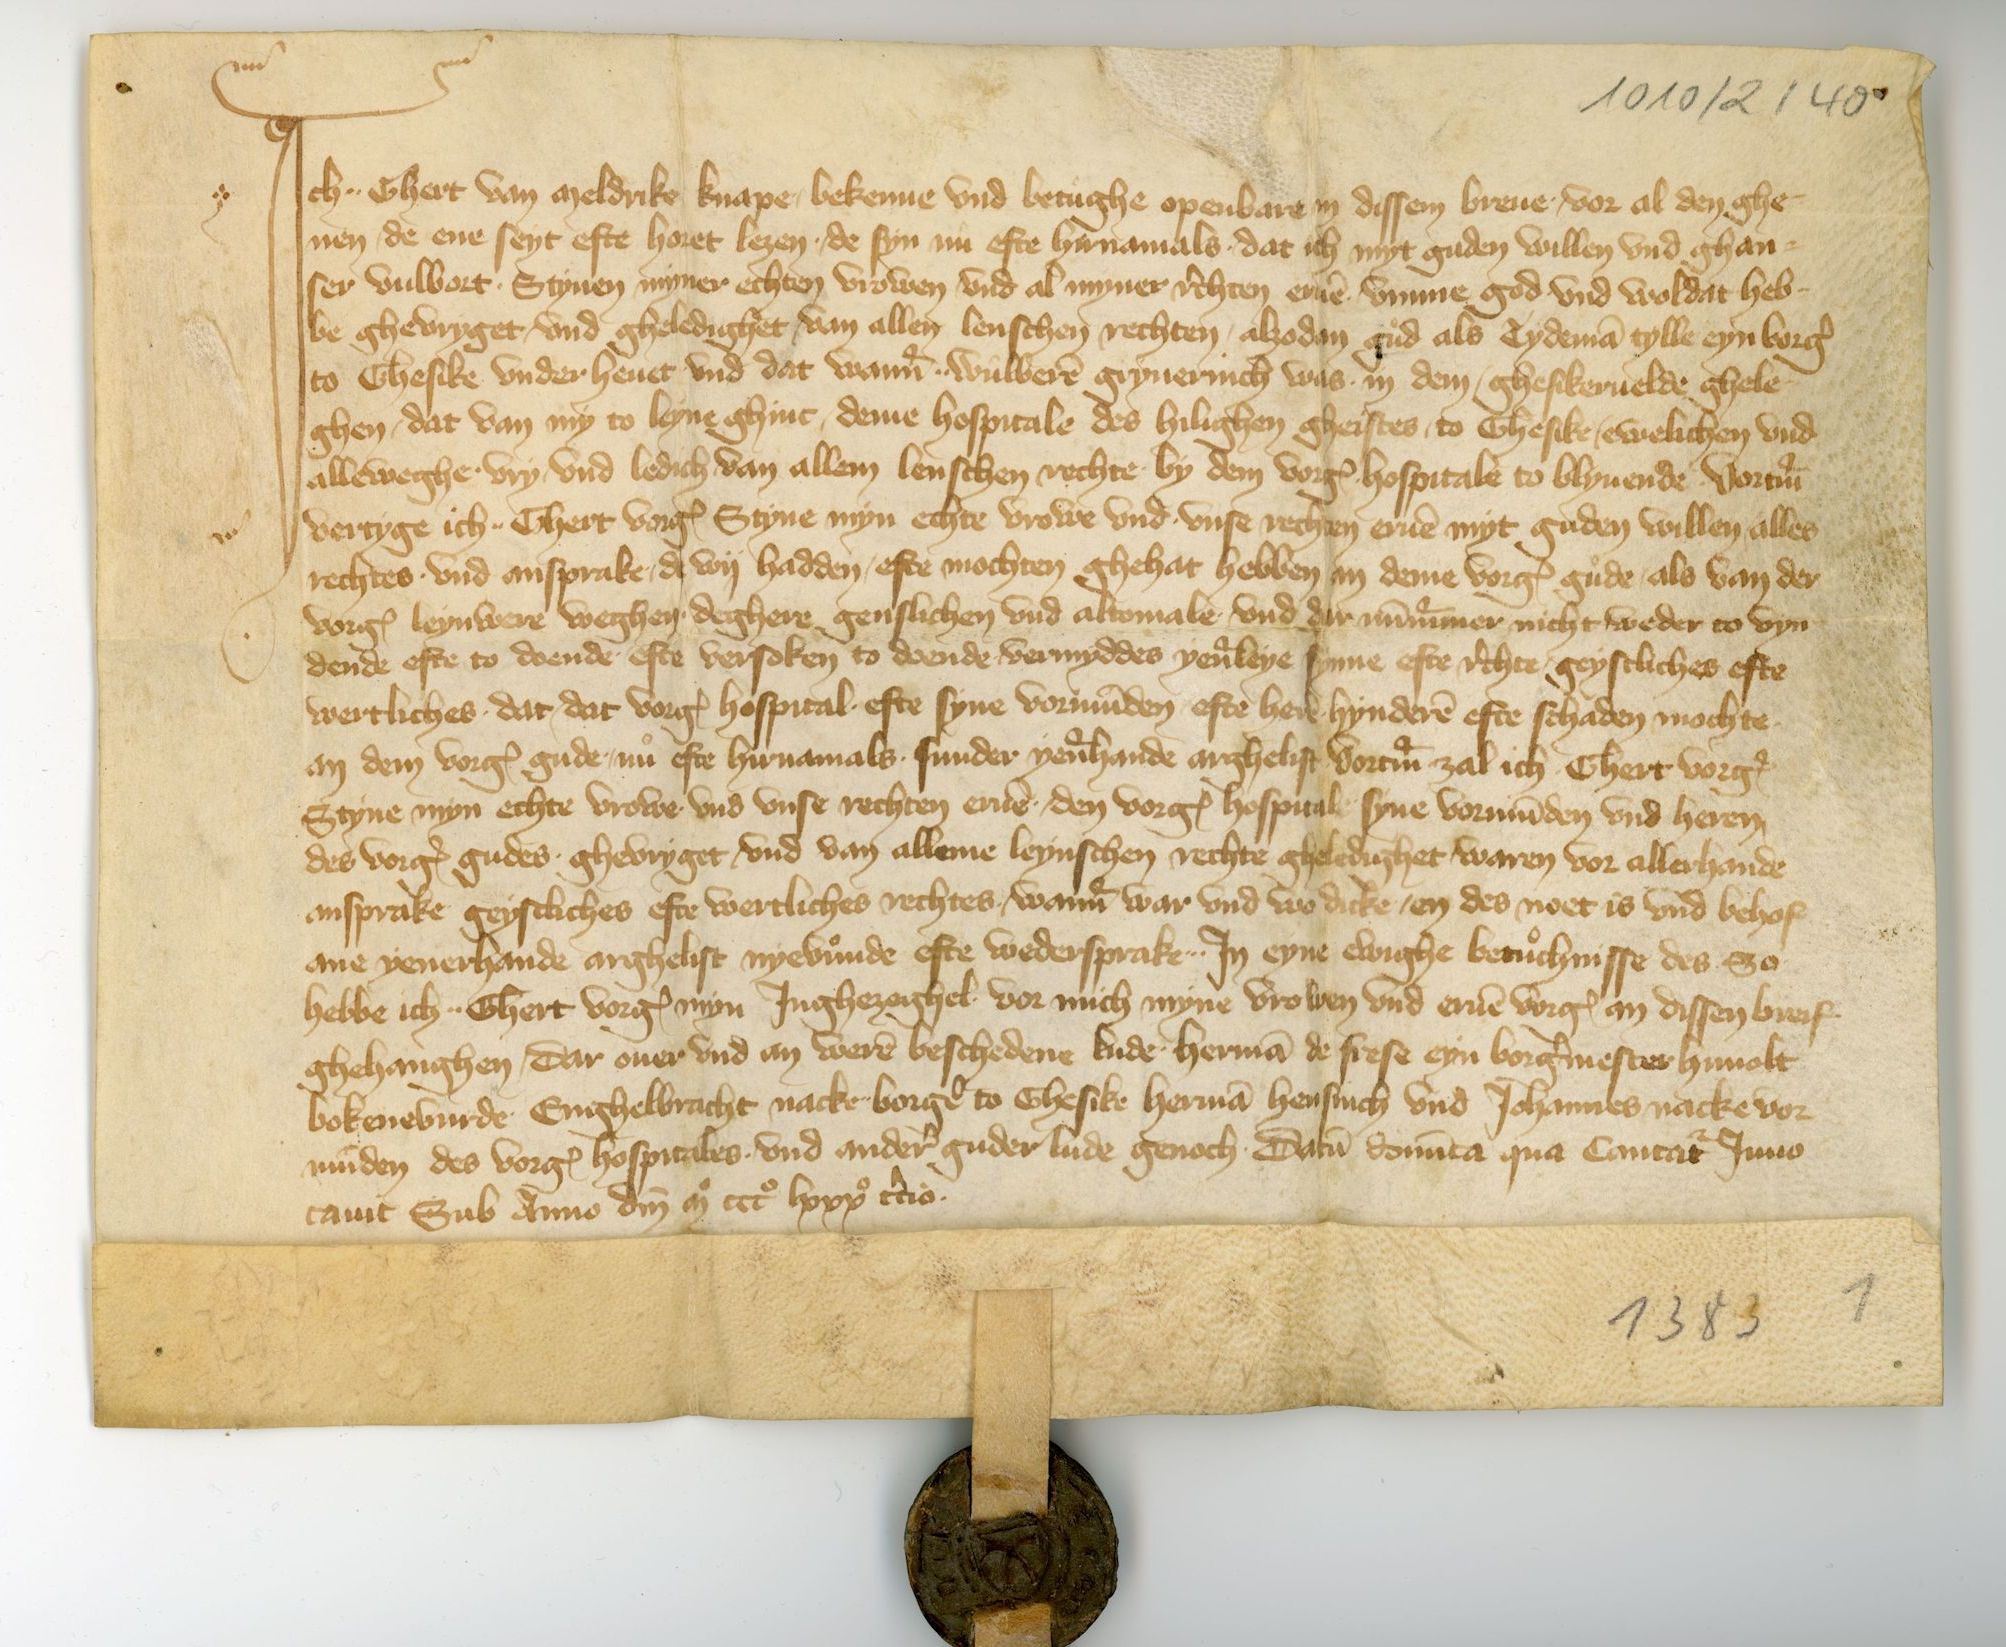 1010/2 / 40
Ich·· Ghert van meldrike knape bekenne vnd betughe openbare in dissem breue vor al den ghe-
nen de ene seyt efte horet lezen de syn nu efte hirnamals dat ich myt guden willen vnd ghan-
ser vulbort Stynen myner echten vrowen vnd al myner rechten eruē vmme god vnd woldat heb-
be ghevryget vnd gheledighet van allen lenschen rechten alzodan gud als Tydemā tylle eyn borg͛
to Ghesike vnder heuet vnd dat wann͛ wulberē was in dem ghesikeruelde ghele-
ghen dat van my to leyne ghinc deme hospitale des hilighen gheistes to Ghesike ewelichen vnd
alleweghe vry vnd ledich van allem lenschen rechte by dem vorg͛ hospitale to blyuende Vortm͛
vertyge ich·· Ghert vorg͛ Styne myn echte vrowe vnd vnse rechten eruē myt guden willen alles
rechtes vnd ansprake de wij hadden efte mochten ghehat hebben an deme vorg͛ gude als van der
vorg͛ leynwere weghen deghere genslichen vnd altomale vnd dar nūm͛mer nicht weder to vyn
dende efte to doende efte versoken to doende vermyddes yen͛leye synne efte rechte geystliches efte
wertliches dat dat vorg͛ hospital efte syne vormūden efte herē hynderē efte schaden mochte
an dem vorg͛ gude nu efte hirnamals sunder yen͛hande arghelist Vortm͛ zal ich Ghert vorg͛
Styne myn echte vrowe vnd vnse rechten eruē den vorg͛ hospital syne vormūden vnd heren
des vorg͛ gudes ghevryget vnd van alleme leynschen rechte gheledighet waren vor allerhande
ansprake geystliches efte wertliches rechtes wann͛ war vnd wo dicke en des noet is vnd behof
ane yenerhande arghelist nyevunde efte wedersprake·· In eyne ewighe betuchnisse des So
hebbe ich·· Ghert vorg͛ myn Inghezeghel vor mich myne vrowen vnd eruē vorg͛ an dissen breif
ghehanghen Dar ouer vnd an werē beschedene lude hermā de frese eyn borg͛mester hunolt
bokenevurde Enghelbracht nacke borg͛e to Ghesike hermā hensinch vnd Johannes nacke vor
mūden des vorg͛ hospitales vnd ander͛ guder lude genoch Datū domīca qua Cantat͛ Inuo
cauit Sub Anno dm̄ mº cccº lxxxº t͛cio
1383
1